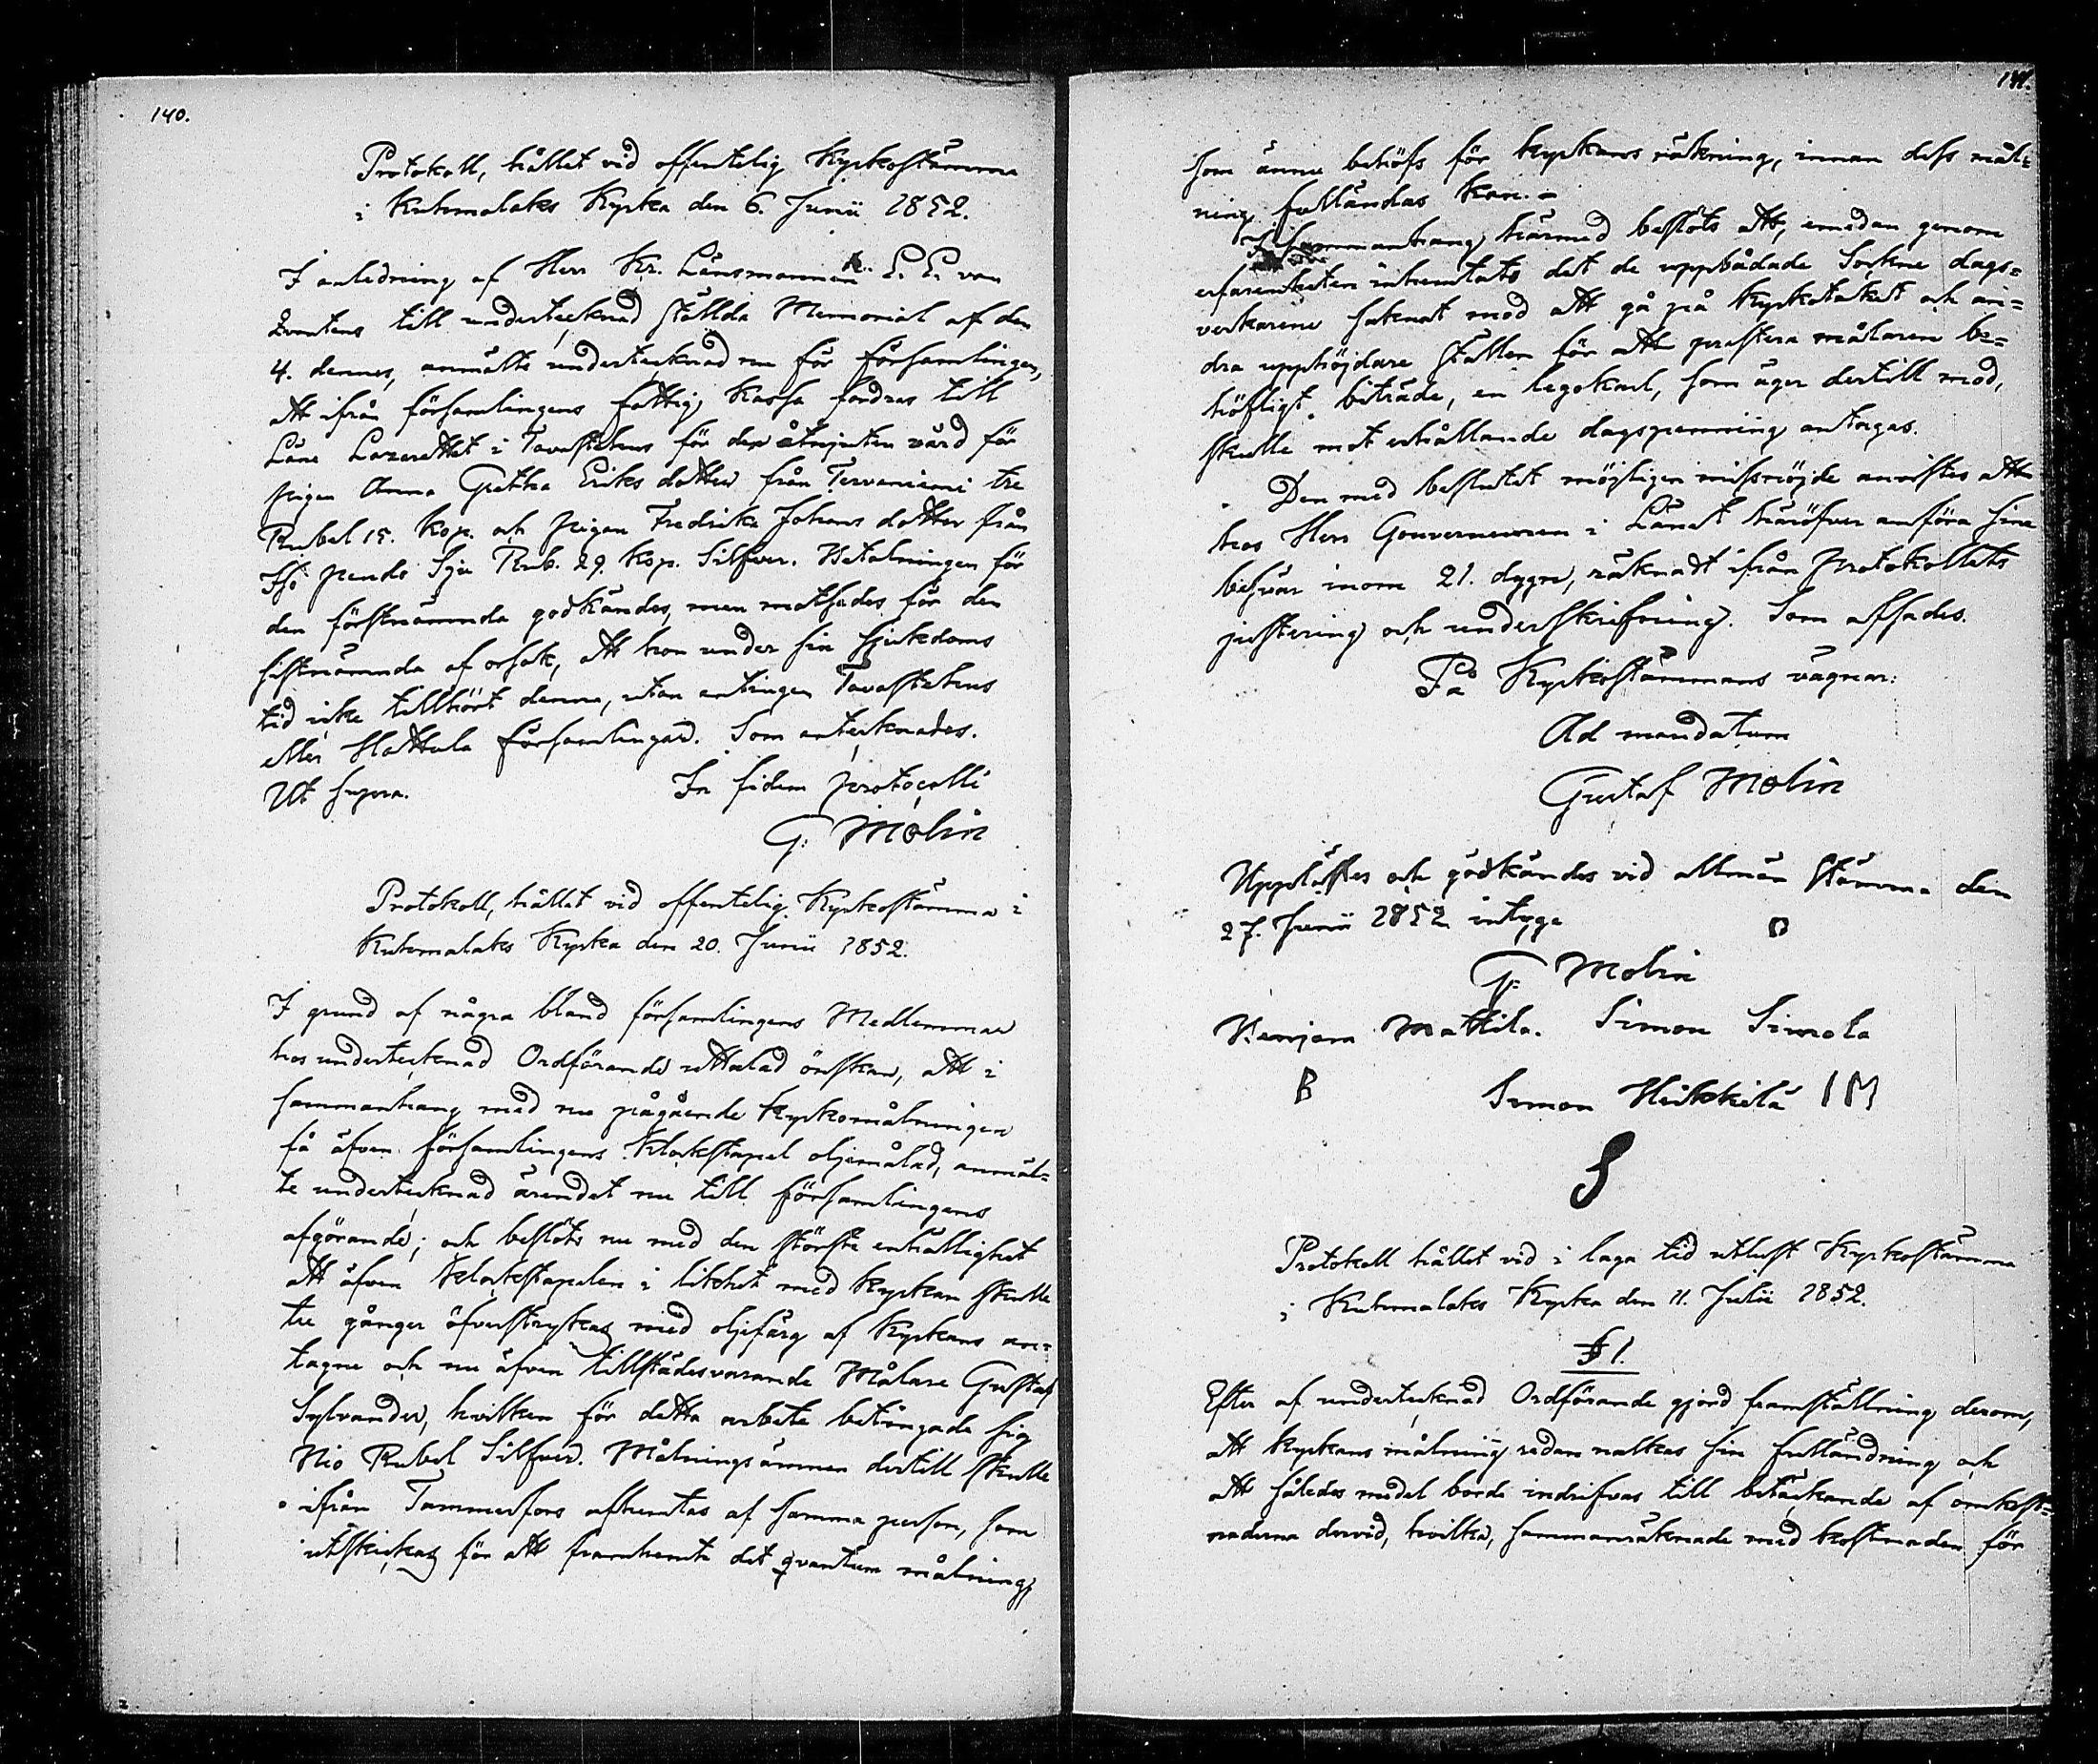 140.
Protokoll, hållet vid offentelig Kyrkostämma
i Kuhmalaks Kyrka den 6. Junii 1852.
I anledning af Herr Kr. Länsmannen E. E. von
Zvontens till undertecknad ställda Memorial af den
4. dennes, anmälte undertecknad nu för församlingen,
att ifrån församlingens fattig Kassa fordras till
Läns Lazarettet i Tavastehus för der åtnjuten vård för
pigan Anna Gretha Eriks dotter från Tervaniemi tre
Rubel 15. kop. och pigan Fredrika Johans dotter från
Sju Rub. 29. kop. Silfver. Betalningen för
den förstnämnda godkändes, men motsades för den
sistnämnda af orsak, att hon under sin sjukdoms
tid icke tillhört denna, utan antingen Tavastehus
eller Hattula församlingar. Som antecknades.
Ut supra. In fidem protocolli
G. Molin
Protokoll, hållet vid offentelig Kyrkostämma i
Kuhmalaks Kyrka den 20. Junii 1852.
I grund af några bland församlingens Medlemmar
hos undertecknad Ordförande uttalad önskan, att i
sammanhang med nu pågående kyrkomålningen
få äfven församlingens Klockstapel oljemålad, anmäl-
te undertecknad ärendet nu till församlingens
afgörande; och beslöts nu med den största enhällighet
att äfven Klockstapelen i likhet med kyrkan skulle
tre gånger öfverstrykas med oljefärg af Kyrkans an-
tagne och nu äfven tillstädesvarande Målare Gustaf
Sylvander, hvilken för detta arbete betingade sig
Nio Rubel Silfver. Målningsämnen dertill skulle
ifrån Tammerfors afhemtas af samma person, som
utskickas för att framhemta det qvantum målning,
141.
som ännu behöfs för kyrkans räkning, innan dess mål-
ning fulländas kan. -
I sammanhang härmed beslöts att, emedan genom
erfarenheten inhemtats det de uppbådade Sockne dags-
verkarene saknat mod att gå på kyrkotaket och an-
dra upphöjdare ställen för att prestera målaren be-
höfligt biträde, en legokarl, som äger dertill mod,
skulle mot erhållande dagspenning antagas.
Den med beslutet möjligen missnöjde anvistes att
hos Herr Gouverneuren i Länet häröfver anföra sina
besvär inom 21. dygn, räknadt ifrån Protokollets
justering och underskrifning. Som afsades.
På Kyrkostämmans vägnar:
Ad mandatum
Gustaf Molin
Upplästes och godkändes vid allmän Stämma den
27. Junii 1852 intyga
G. Molin
Benjam Mattila. Simon Simola
B Simon Heikkilä IM
S
Protokoll hållet vid i laga tid utlyst Kyrkostämma
i Kuhmalaks Kyrka den 11. Julii 1852.
§ 1.
Efter af undertecknad Ordförande gjord framställning derom,
att kyrkans målning redan nalkas sin fulländning och
att således medel borde indrifvas till betäckande af omkost-
naderna dervid, hvilka, sammanräknade med kostnaden för